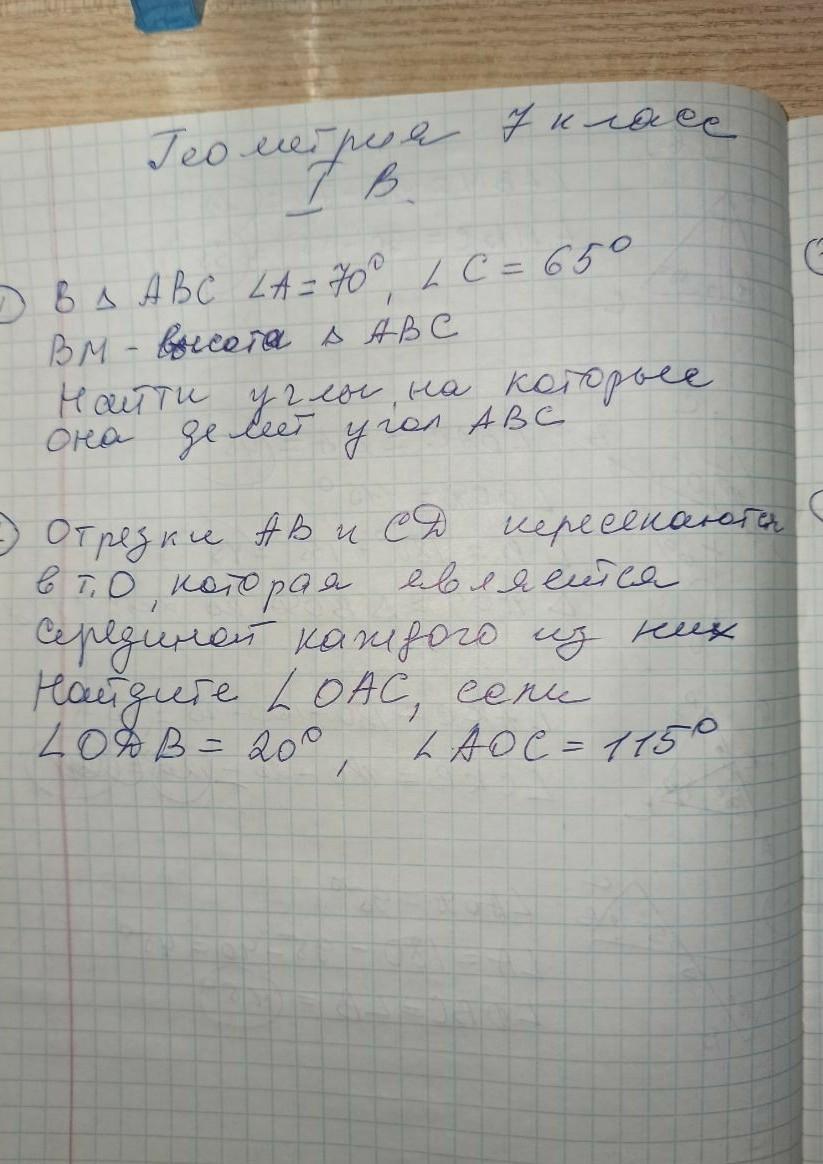 Геометрия 7 класс
I В.
1) В △ ABC ∠A = 70°, ∠C = 65°
BM - высота △ ABC
Найти углы, на которые
она делит угол ABC
2) Отрезки AB и CD пересекаются
в т.О, которая является
серединой каждого из них
Найдите ∠OAC, если
∠ODB = 20°, ∠AOC = 115°